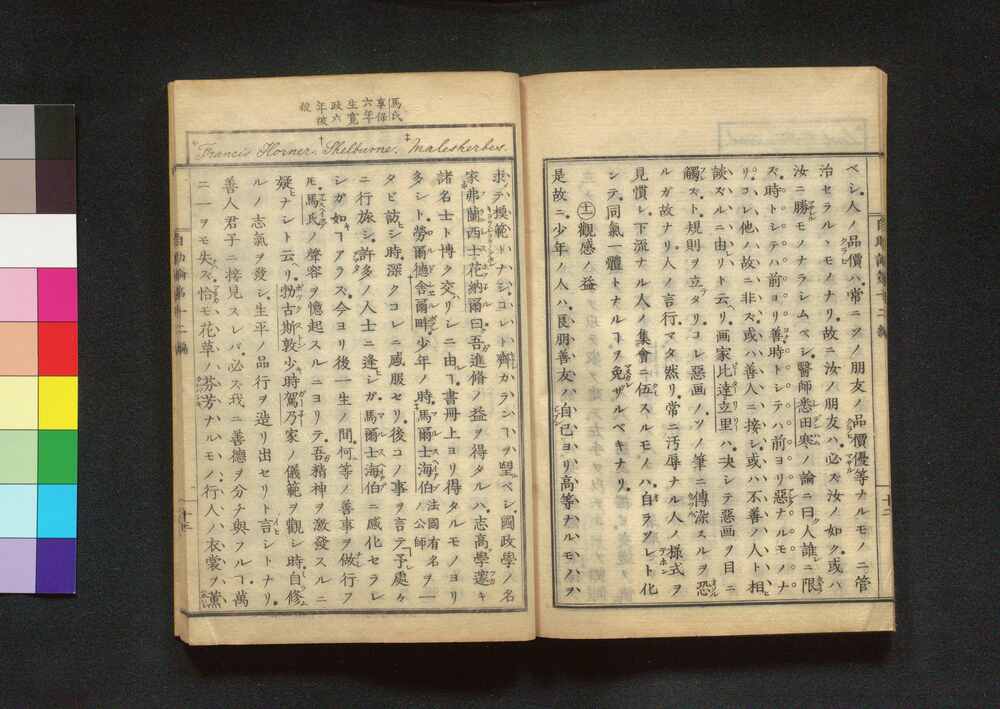 ベシ、人ノ品價ハ、常ニソノ朋友ノ品價優等ナルモノニ管
治セラルヽモノナリ故ニ汝ノ朋友ハ、必ズ汝ノ如ク、或ハ
汝ニ勝モノナラシムベシ、醫師悉田寒ノ論ニ曰人誰ニ限
ス、時トシテハ前ヨリ善、時トシテハ前ヨリ惡ナルモノナ
リ、コレ他ノ故ニ非ズ、或ハ善人ニ接シ、或ハ不善ノ人ト相
談スルニ由リト云リ、画家比達立里ハ、决シテ惡画ヲ目ニ
觸ズト、規則ヲ立タリ、コレ惡画ノソノ筆ニ傳染スルヲ恐
ルガ故ナリ、人ノ言行マタ然リ、常ニ汚辱ナル人ノ様式ヲ
見慣シ、下流ナル人ノ集會ニ伍スルモノハ、自ラソレト化
シテ、同氣一體トナルヿヲ免ザルベキナリ、
㊉ 觀感ノ益
是故ニ、少年ノ人ハ、良朋善友ノ自己ヨリ高等ナルモノヲ、
馬氏
享保
六年
生寛
政六
年彼
殺
*Francis Horner. †Shelburne. ‡Malesherbes.
求テ、模範トナシ、コレト齊カランヿヲ望ベシ、國政學ノ名
家弗蘭西士花納爾曰、吾進脩ノ益ヲ得タルハ、志高學邃キ
諸名士ト博ク交リシニ由ル、書冊上ヨリ得タルモノヨリ
多シト、勞爾德舍爾畔、少年ノ時、馬爾士海伯法國有名ノ公師ヲ一
タビ訪シ時、深クコレニ感服セリ、後コノ事ヲ言テ、予處々
ニ行旅シ、許多ノ人士ニ逢シガ、馬爾士海伯ニ感化セラレ
シガ如キヿアラズ、今ヨリ後一生ノ間、何等ノ善事ヲ做行フ
𪜈、馬氏ノ聲容ヲ憶起スルニヨリテ、吾精神ヲ激發スルニ
疑ナシト云リ、勃古斯敦、少時駕乃家ノ儀範ヲ觀シ時、自修
ルノ志氣ヲ發シ、生平ノ品行ヲ造リ出セリト言シトナリ、
善人君子ニ接見スレバ、必ズ我ニ善德ヲ分チ與フルヿ、萬
ニ一ヲモ失ズ、恰モ花草ノ芬芳ナルモノ、行人ノ衣裳ヲ薫
自助論第十二編